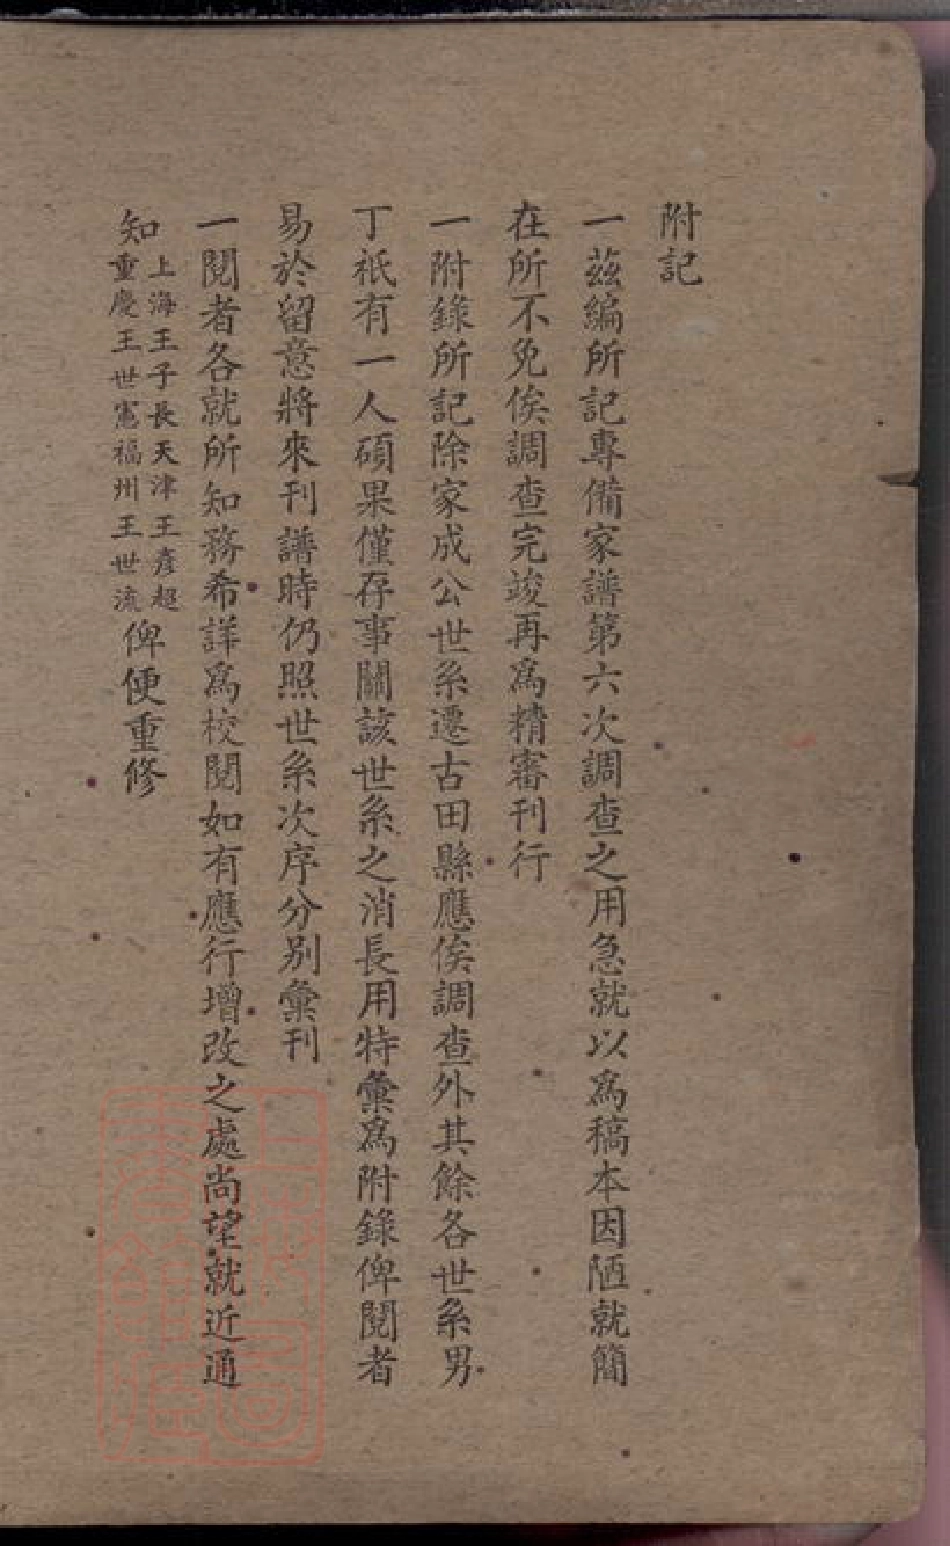 附記
一茲編所記專備家譜第六次調查之用急就以爲稿本因陋就簡
在所不免俟調查完竣再爲精審刊行
一附錄所記除家成公世系遷古田縣應俟調查外其餘各世系男
丁祇有一人碩果僅存事關該世系之消長用特彙爲附錄俾閱者
易於留意將來刊譜時仍照世系次序分別彙刊
一閱者各就所知務希詳爲校閱如有應行增改之處尚望就近通
知
上海王子長天津王彥超
重慶王世憲福州王世流
俾便重修